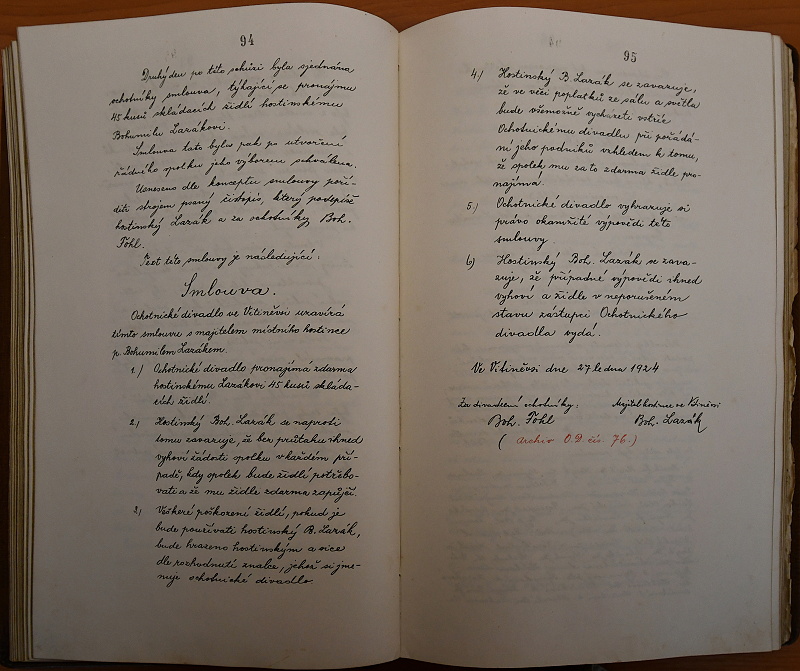 94
Druhý den po této schůzi byla sjednána
ochotníky smlouva, týkající se pronájmu
45 kusů skládacích židlí hostinskému
Bohumilu Lazákovi.
Smlouva tato byla pak po utvoření
řádného spolku jeho výborem schválena.
Usneseno dle konceptu smlouvy poří-
diti strojem psaný čistopis, který podepíše
hostinský Lazák a za ochotníky Boh.
Föhl.
Text této smlouvy je následující:
Smlouva.
Ochotnické divadlo ve Vitiněvsi uzavírá
tímto smlouvu s majitelem místního hostince
p. Bohumilem Lazákem.
1.) Ochotnické divadlo pronajímá zdarma
hostinskému Lazákovi 45 kusů skláda-
cích židlí.
2.) Hostinský Boh. Lazák se naproti
tomu zavazuje, že bez průtahu ihned
vyhoví žádosti spolku v každém pří-
padě, kdy spolek bude židlí potřebo-
vati a že mu židle zdarma zapůjčí.
3.) Veškeré poškození židlí, pokud je
bude používati hostinský B. Lazák,
bude hrazeno hostinským a sice
dle rozhodnutí znalce, jehož si jme-
nuje ochotnické divadlo.
95
4.) Hostinský B. Lazák se zavazuje,
že ve věci poplatků ze sálu a světla
bude všemožně vycházeti vstříc
Ochotnickému divadlu při pořádá-
ní jeho podniků vzhledem k tomu,
že spolek mu za to zdarma židle pro-
najímá.
5.) Ochotnické divadlo vyhrazuje si
právo okamžité výpovědi této
smlouvy.
6) Hostinský Boh. Lazák se zava-
zuje, že případné výpovědi ihned
vyhoví a židle v neporušeném
stavu zástupci Ochotnického
divadla vydá.
Ve Vitiněvsi dne 27 ledna 1924
Za divadelní ochotníky: Majitel hostince ve Vitiněvsi
Boh. Föhl Boh. Lazák
(archiv O.D. čís. 76.)